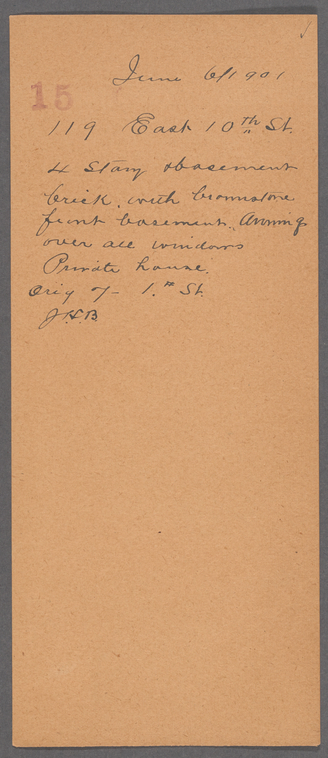 June 6/1901
15
119 East 10th St.
4 Story & basement
brick, with brownstone
front basement. Awnings
over all windows
Private house.
Orig 7- 1.st St.
J.H.B